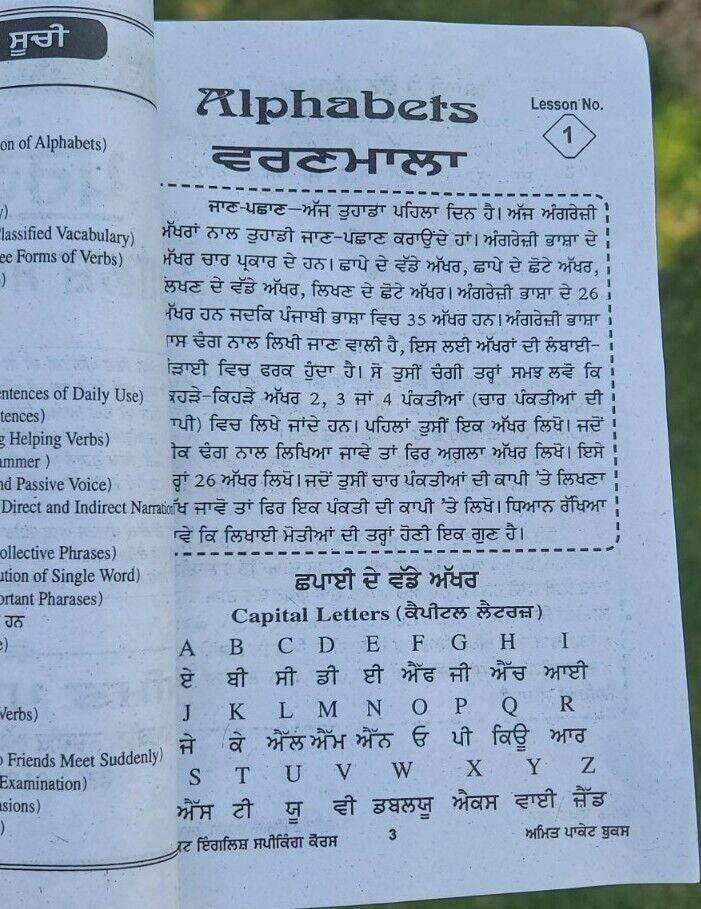 ਸੂਚੀ
on of Alphabets)
y)
lassified Vacabulary)
ee Forms of Verbs)
)
entences of Daily Use)
tences)
g Helping Verbs)
ammer )
nd Passive Voice)
Direct and Indirect Narration
ollective Phrases)
ution of Single Word)
ortant Pharases)
ਹਨ
e)
Verbs)
o Friends Meet Suddenly)
Examination)
sions)
)
Alphabets
Lesson No.
1
ਵਰਣਮਾਲਾ
ਜਾਣ-ਪਛਾਣ—ਅੱਜ ਤੁਹਾਡਾ ਪਹਿਲਾ ਦਿਨ ਹੈ। ਅੱਜ ਅੰਗਰੇਜ਼ੀ
ਅੱਖਰਾਂ ਨਾਲ ਤੁਹਾਡੀ ਜਾਣ-ਪਛਾਣ ਕਰਾਉਂਦੇ ਹਾਂ। ਅੰਗਰੇਜ਼ੀ ਭਾਸ਼ਾ ਦੇ
ਅੱਖਰ ਚਾਰ ਪ੍ਰਕਾਰ ਦੇ ਹਨ। ਛਾਪੇ ਦੇ ਵੱਡੇ ਅੱਖਰ, ਛਾਪੇ ਦੇ ਛੋਟੇ ਅੱਖਰ,
ਲਿਖਣ ਦੇ ਵੱਡੇ ਅੱਖਰ, ਲਿਖਣ ਦੇ ਛੋਟੇ ਅੱਖਰ। ਅੰਗਰੇਜ਼ੀ ਭਾਸ਼ਾ ਦੇ 26
ਅੱਖਰ ਹਨ ਜਦਕਿ ਪੰਜਾਬੀ ਭਾਸ਼ਾ ਵਿਚ 35 ਅੱਖਰ ਹਨ। ਅੰਗਰੇਜ਼ੀ ਭਾਸ਼ਾ
ਾਸ ਢੰਗ ਨਾਲ ਲਿਖੀ ਜਾਣ ਵਾਲੀ ਹੈ, ਇਸ ਲਈ ਅੱਖਰਾਂ ਦੀ ਲੰਬਾਈ-
ੜਾਈ ਵਿਚ ਫਰਕ ਹੁੰਦਾ ਹੈ। ਸੋ ਤੁਸੀਂ ਚੰਗੀ ਤਰ੍ਹਾਂ ਸਮਝ ਲਵੋ ਕਿ
ਕਿਹੜੇ-ਕਿਹੜੇ ਅੱਖਰ 2, 3 ਜਾਂ 4 ਪੰਕਤੀਆਂ (ਚਾਰ ਪੰਕਤੀਆਂ ਦੀ
ਾਪੀ) ਵਿਚ ਲਿਖੇ ਜਾਂਦੇ ਹਨ। ਪਹਿਲਾਂ ਤੁਸੀਂ ਇਕ ਅੱਖਰ ਲਿਖੋ। ਜਦੋਂ
ੀਕ ਢੰਗ ਨਾਲ ਲਿਖਿਆ ਜਾਵੇ ਤਾਂ ਫਿਰ ਅਗਲਾ ਅੱਖਰ ਲਿਖੋ। ਇਸੇ
ਰ੍ਹਾਂ 26 ਅੱਖਰ ਲਿਖੋ। ਜਦੋਂ ਤੁਸੀਂ ਚਾਰ ਪੰਕਤੀਆਂ ਦੀ ਕਾਪੀ ’ਤੇ ਲਿਖਣਾ
ਖ ਜਾਵੋ ਤਾਂ ਫਿਰ ਇਕ ਪੰਕਤੀ ਦੀ ਕਾਪੀ ’ਤੇ ਲਿਖੋ। ਧਿਆਨ ਰੱਖਿਆ
ਾਵੇ ਕਿ ਲਿਖਾਈ ਮੋਤੀਆਂ ਦੀ ਤਰ੍ਹਾਂ ਹੋਣੀ ਇਕ ਗੁਣ ਹੈ।
ਛਪਾਈ ਦੇ ਵੱਡੇ ਅੱਖਰ
Capital Letters (ਕੈਪੀਟਲ ਲੈਟਰਜ਼)
A B C D E F G H I
ਏ ਬੀ ਸੀ ਡੀ ਈ ਐੱਫ ਜੀ ਐੱਚ ਆਈ
J K L M N O P Q R
ਜੇ ਕੇ ਐੱਲ ਐੱਮ ਐੱਨ ਓ ਪੀ ਕਿਊ ਆਰ
S T U V W X Y Z
ਐੱਸ ਟੀ ਯੂ ਵੀ ਡਬਲਯੂ ਐਕਸ ਵਾਈ ਜ਼ੈੱਡ
ਇੰਗਲਿਸ਼ ਸਪੀਕਿੰਗ ਕੋਰਸ 3 ਅਮਿਤ ਪਾਕੇਟ ਬੁਕਸ